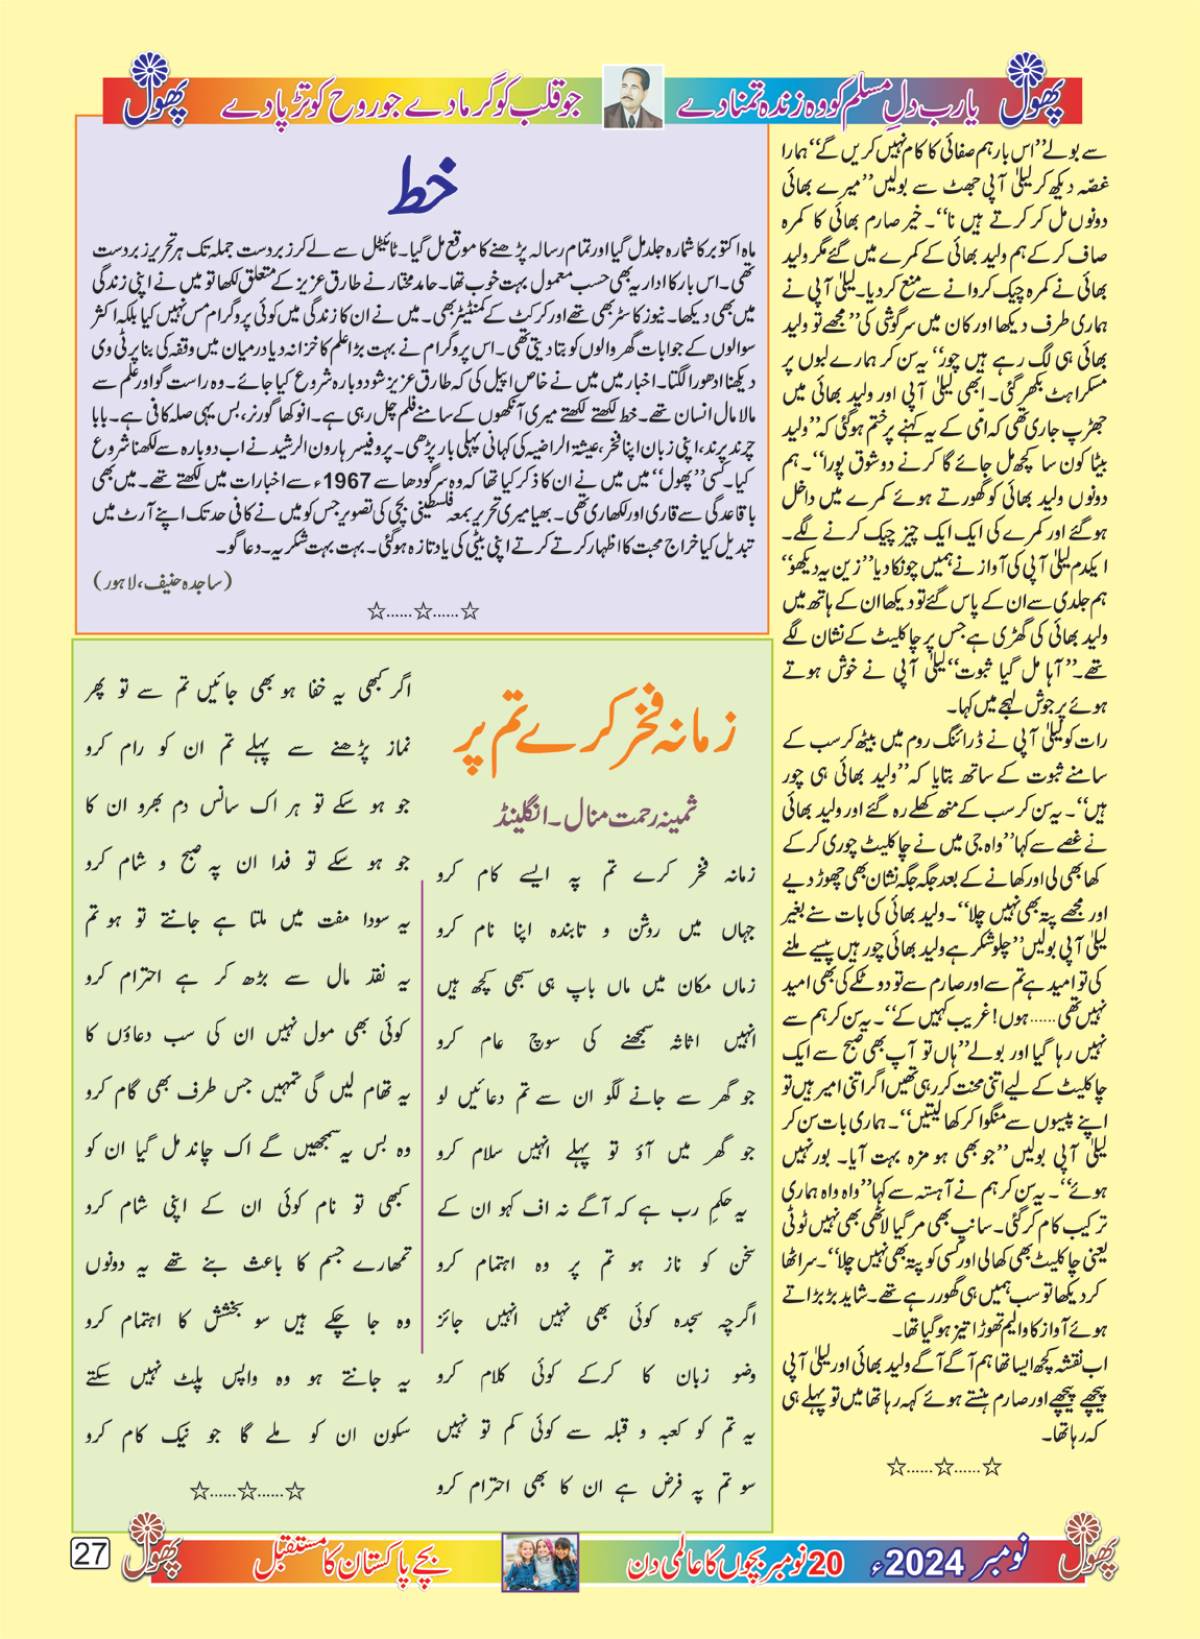 پھول
یا رب دلِ مسلم کو وہ زندہ تمنا دے
جو قلب کو گرما دے جو روح کو تڑپا دے
پھول
سے بولے ”اس بار ہم صفائی کا کام نہیں کریں گے“ ہمارا
غصّہ دیکھ کر لیلیٰ آپی جھٹ سے بولیں ”میرے بھائی
دونوں مل کر کرتے ہیں نا“۔ خیر صارم بھائی کا کمرہ
صاف کر کے ہم ولید بھائی کے کمرے میں گئے مگر ولید
بھائی نے کمرہ چیک کروانے سے منع کر دیا۔ لیلیٰ آپی نے
ہماری طرف دیکھا اور کان میں سرگوشی کی ”مجھے تو ولید
بھائی ہی لگ رہے ہیں چور“ یہ سن کر ہمارے لبوں پر
مسکراہٹ بکھر گئی۔ ابھی لیلیٰ آپی اور ولید بھائی میں
جھڑپ جاری تھی کہ امّی کے یہ کہنے پر ختم ہو گئی کہ ”ولید
بیٹا کون سا کچھ مل جائے گا کرنے دو شوق پورا“۔ ہم
دونوں ولید بھائی کو گھورتے ہوئے کمرے میں داخل
ہو گئے اور کمرے کی ایک ایک چیز چیک کرنے لگے۔
ایکدم لیلیٰ آپی کی آواز نے ہمیں چونکا دیا ”زین یہ دیکھو“
ہم جلدی سے ان کے پاس گئے تو دیکھا ان کے ہاتھ میں
ولید بھائی کی گھڑی ہے جس پر چاکلیٹ کے نشان لگے
تھے۔ ”آہا مل گیا ثبوت“ لیلیٰ آپی نے خوش ہوتے
ہوئے پر جوش لہجے میں کہا۔
رات کو لیلیٰ آپی نے ڈرائنگ روم میں بیٹھ کر سب کے
سامنے ثبوت کے ساتھ بتایا کہ ”ولید بھائی ہی چور
ہیں“۔ یہ سن کر سب کے منھ کھلے رہ گئے اور ولید بھائی
نے غصے سے کہا ”واہ جی میں نے چاکلیٹ چوری کر کے
کھا بھی لی اور کھانے کے بعد جگہ جگہ نشان بھی چھوڑ دیے
اور مجھے پتہ بھی نہیں چلا“۔ ولید بھائی کی بات سنے بغیر
لیلیٰ آپی بولیں ”چلو شکر ہے ولید بھائی چور ہیں پیسے ملنے
کی تو امید ہے تم سے اور صارم سے تو دو ٹکے کی بھی امید
نہیں تھی......ہوں! غریب کہیں کے“۔ یہ سن کر ہم سے
نہیں رہا گیا اور بولے ”ہاں تو آپ بھی صبح سے ایک
چاکلیٹ کے لیے اتنی محنت کر رہی تھیں اگر اتنی امیر ہیں تو
اپنے پیسوں سے منگوا کر کھا لیتیں“۔ ہماری بات سن کر
لیلیٰ آپی بولیں ”جو بھی ہو مزہ بہت آیا۔ بور نہیں
ہوئے“۔ یہ سن کر ہم نے آہستہ سے کہا ”واہ واہ ہماری
ترکیب کام کر گئی۔ سانپ بھی مر گیا لاٹھی بھی نہیں ٹوٹی
یعنی چاکلیٹ بھی کھالی اور کسی کو پتہ بھی نہیں چلا“۔ سر اٹھا
کر دیکھا تو سب ہمیں ہی گھور رہے تھے۔ شاید بڑبڑاتے
ہوئے آواز کا والیم تھوڑا تیز ہو گیا تھا۔
اب نقشہ کچھ ایسا تھا ہم آگے آگے ولید بھائی اور لیلیٰ آپی
پیچھے پیچھے اور صارم ہنستے ہوئے کہہ رہا تھا میں تو پہلے ہی
کہہ رہا تھا۔
☆......☆......☆
خط
ماہ اکتوبر کا شمارہ جلد مل گیا اور تمام رسالہ پڑھنے کا موقع مل گیا۔ ٹائیٹل سے لے کر زبردست جملہ تک ہر تحریر زبردست
تھی۔ اس بار کا اداریہ بھی حسب معمول بہت خوب تھا۔ حامد مختار نے طارق عزیز کے متعلق لکھا تو میں نے اپنی زندگی
میں بھی دیکھا۔ نیوز کاسٹر بھی تھے اور کرکٹ کے کمنٹیٹر بھی۔ میں نے ان کا زندگی میں کوئی پروگرام مس نہیں کیا بلکہ اکثر
سوالوں کے جوابات گھر والوں کو بتا دیتی تھی۔ اس پروگرام نے بہت بڑا علم کا خزانہ دیا درمیان میں وقفہ کی بنا پر ٹی وی
دیکھنا ادھورا لگتا۔ اخبار میں میں نے خاص اپیل کی کہ طارق عزیز شو دوبارہ شروع کیا جائے۔ وہ راست گو اور علم سے
مالا مال انسان تھے۔ خط لکھتے لکھتے میری آنکھوں کے سامنے فلم چل رہی ہے۔ انوکھا گورنر، بس یہی صلہ کافی ہے۔ بابا
چرند پرند، اپنی زبان اپنا فخر، عیشۃ الراضیہ کی کہانی پہلی بار پڑھی۔ پروفیسر ہارون الرشید نے اب دوبارہ سے لکھنا شروع
کیا۔ کسی ”پھول“ میں میں نے ان کا ذکر کیا تھا کہ وہ سرگودھا سے 1967ء سے اخبارات میں لکھتے تھے۔ میں بھی
باقاعدگی سے قاری اور لکھاری تھی۔ بھیا میری تحریر بمعہ فلسطینی بچی کی تصویر جس کو میں نے کافی حد تک اپنے آرٹ میں
تبدیل کیا خراج محبت کا اظہار کرتے کرتے اپنی بیٹی کی یاد تازہ ہو گئی۔ بہت بہت شکریہ۔ دعا گو۔
(ساجدہ حنیف، لاہور)
☆......☆......☆
زمانہ فخر کرے تم پر
ثمینہ رحمت منال۔ انگلینڈ
زمانہ فخر کرے تم پہ ایسے کام کرو
جہاں میں روشن و تابندہ اپنا نام کرو
زماں مکان میں ماں باپ ہی سبھی کچھ ہیں
انہیں اثاثہ سمجھنے کی سوچ عام کرو
جو گھر سے جانے لگو ان سے تم دعائیں لو
جو گھر میں آؤ تو پہلے انہیں سلام کرو
یہ حکمِ رب ہے کہ آگے نہ اف کہو ان کے
سخن کو ناز ہو تم پر وہ اہتمام کرو
اگرچہ سجدہ کوئی بھی نہیں انہیں جائز
وضو زبان کا کرکے کوئی کلام کرو
یہ تم کو کعبہ و قبلہ سے کوئی کم تو نہیں
سو تم پہ فرض ہے ان کا بھی احترام کرو
اگر کبھی یہ خفا ہو بھی جائیں تم سے تو پھر
نماز پڑھنے سے پہلے تم ان کو رام کرو
جو ہو سکے تو ہر اک سانس دم بھرو ان کا
جو ہو سکے تو فدا ان پہ صبح و شام کرو
یہ سودا مفت میں ملتا ہے جانتے تو ہو تم
یہ نقد مال سے بڑھ کر ہے احترام کرو
کوئی بھی مول نہیں ان کی سب دعاؤں کا
یہ تھام لیں گی تمہیں جس طرف بھی گام کرو
وہ بس یہ سمجھیں گے اک چاند مل گیا ان کو
کبھی تو نام کوئی ان کے اپنی شام کرو
تمھارے جسم کا باعث بنے تھے یہ دونوں
وہ جا چکے ہیں سو بخشش کا اہتمام کرو
یہ جانتے ہو وہ واپس پلٹ نہیں سکتے
سکون ان کو ملے گا جو نیک کام کرو
☆......☆......☆
پھول
نومبر 2024ء
20 نومبر بچوں کا عالمی دن
بچے پاکستان کا مستقبل
پھول
27